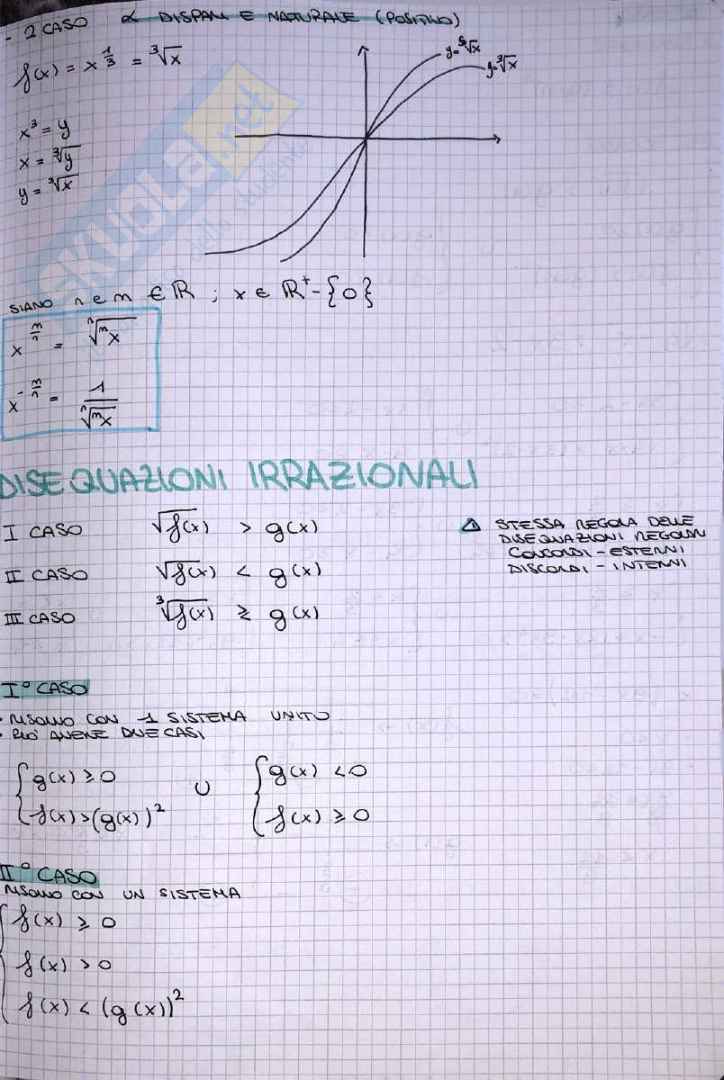 - 2 CASO ∝ DISPARI E NATURALE (POSITIVO)
f(x) = x^{1/3} = ∛x
y=⁵√x
y=∛x
x³ = y
x = ∛y
y = ∛x
SKUOLA.net
dello studente
SIANO n e m ∈ ℝ ; x ∈ ℝ⁺-{0}
x^{m/n} = ⁿ√ᵐx
x^{-m/n} = 1/ⁿ√ᵐx
DISEQUAZIONI IRRAZIONALI
I CASO √f(x) > g(x)
II CASO √f(x) < g(x)
III CASO ∛f(x) ≷ g(x)
⚠ STESSA REGOLA DELLE
DISEQUAZIONI REGOLARI
CONCORDI - ESTERNI
DISCORDI - INTERNI
I° CASO
• RISOLVO CON 1 SISTEMA UNITO
• PUÒ AVERE DUE CASI
{ g(x) ≥ 0 ∪ { g(x) < 0
{ f(x) > (g(x))² { f(x) ≥ 0
II° CASO
RISOLVO CON UN SISTEMA
{ f(x) ≥ 0
f(x) > 0
f(x) < (g(x))²